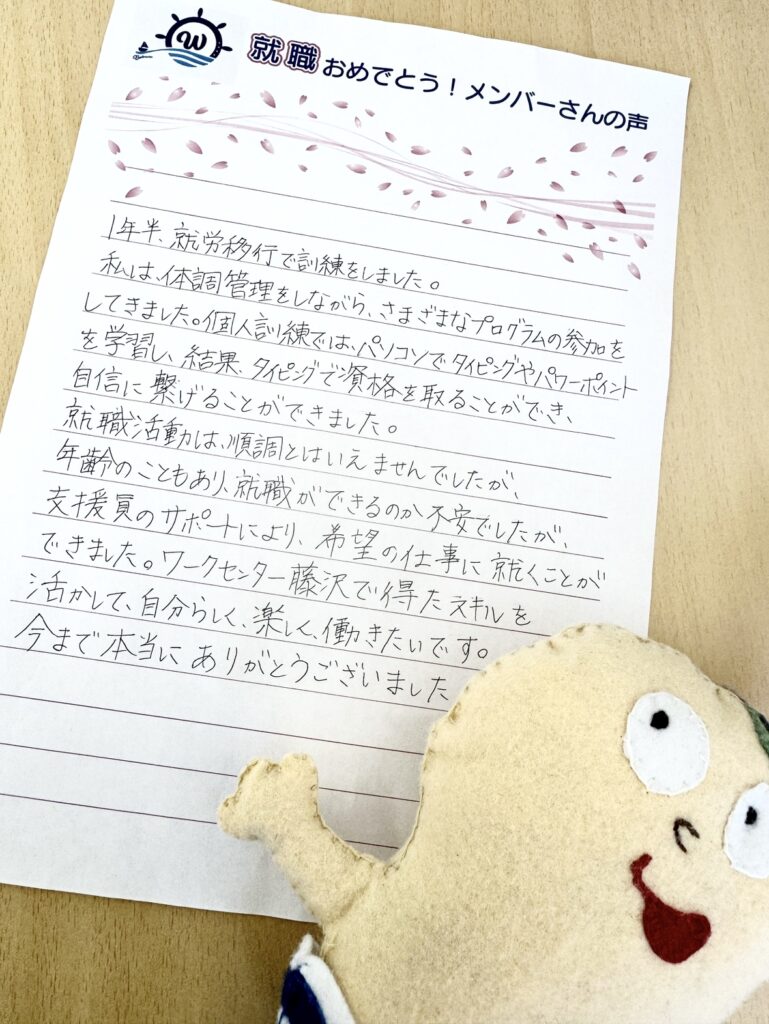 W
就職おめでとう！メンバーさんの声
1年半、就労移行で訓練をしました。
私は、体調管理をしながら、さまざまなプログラムの参加を
してきました。個人訓練では、パソコンでタイピングやパワーポイント
を学習し、結果、タイピングで資格を取ることができ、
自信に繋げることができました。
就職活動は、順調とはいえませんでしたが、
年齢のこともあり、就職ができるのか不安でしたが、
支援員のサポートにより、希望の仕事に就くことが
できました。ワークセンター藤沢で得たスキルを
活かして、自分らしく、楽しく、働きたいです。
今まで本当にありがとうございました